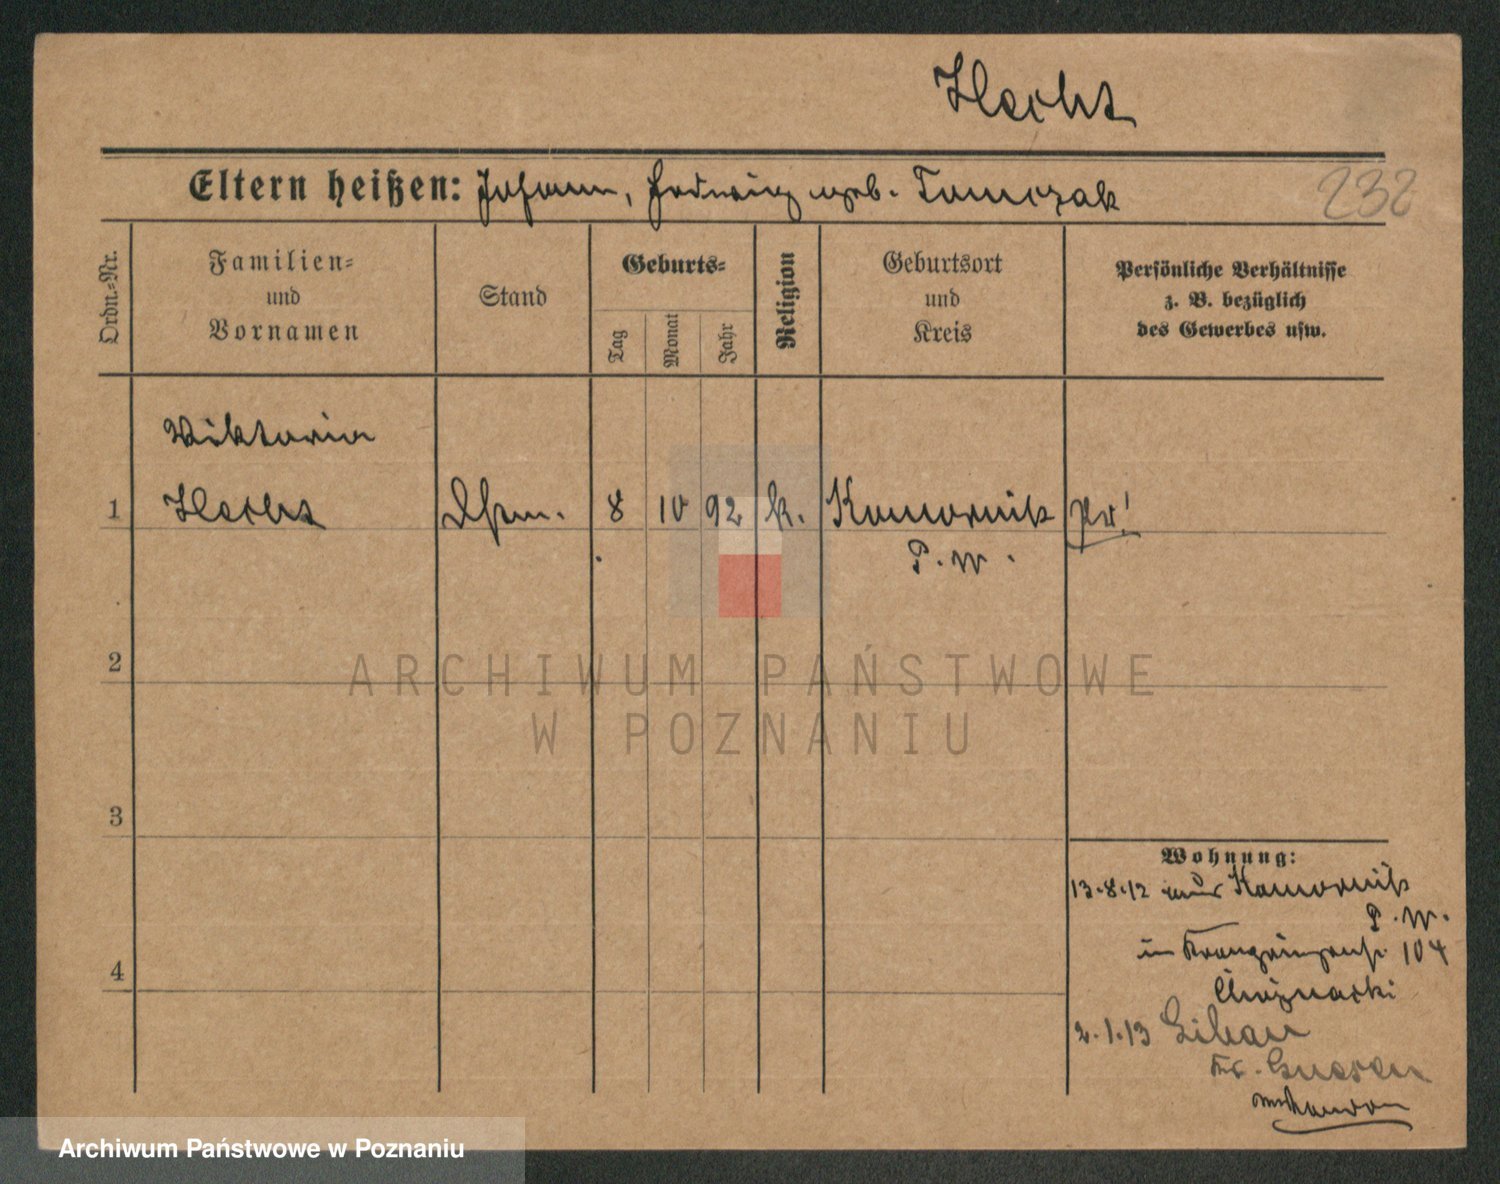 Hecht
Eltern heißen: Johann, Hedwig geb. Tomczak
232
Ordn.-Nr.
Familien-
und
Vornamen
Stand
Geburts-
Tag
Monat
Jahr
Religion
Geburtsort
und
Kreis
Persönliche Verhältnisse
z. B. bezüglich
des Gewerbes usw.
Viktoria
1 Hecht 8 10 92 k. Komornik Pr!
P. W.
2
ARCHIWUM PAŃSTWOWE
W POZNANIU
3
Wohnung:
13.8.12 aus Komornik
P. W.
in Kronprinzenstr. 104
4
2.1.13 Libau
Kr. Gnesen
Archiwum Państwowe w Poznaniu